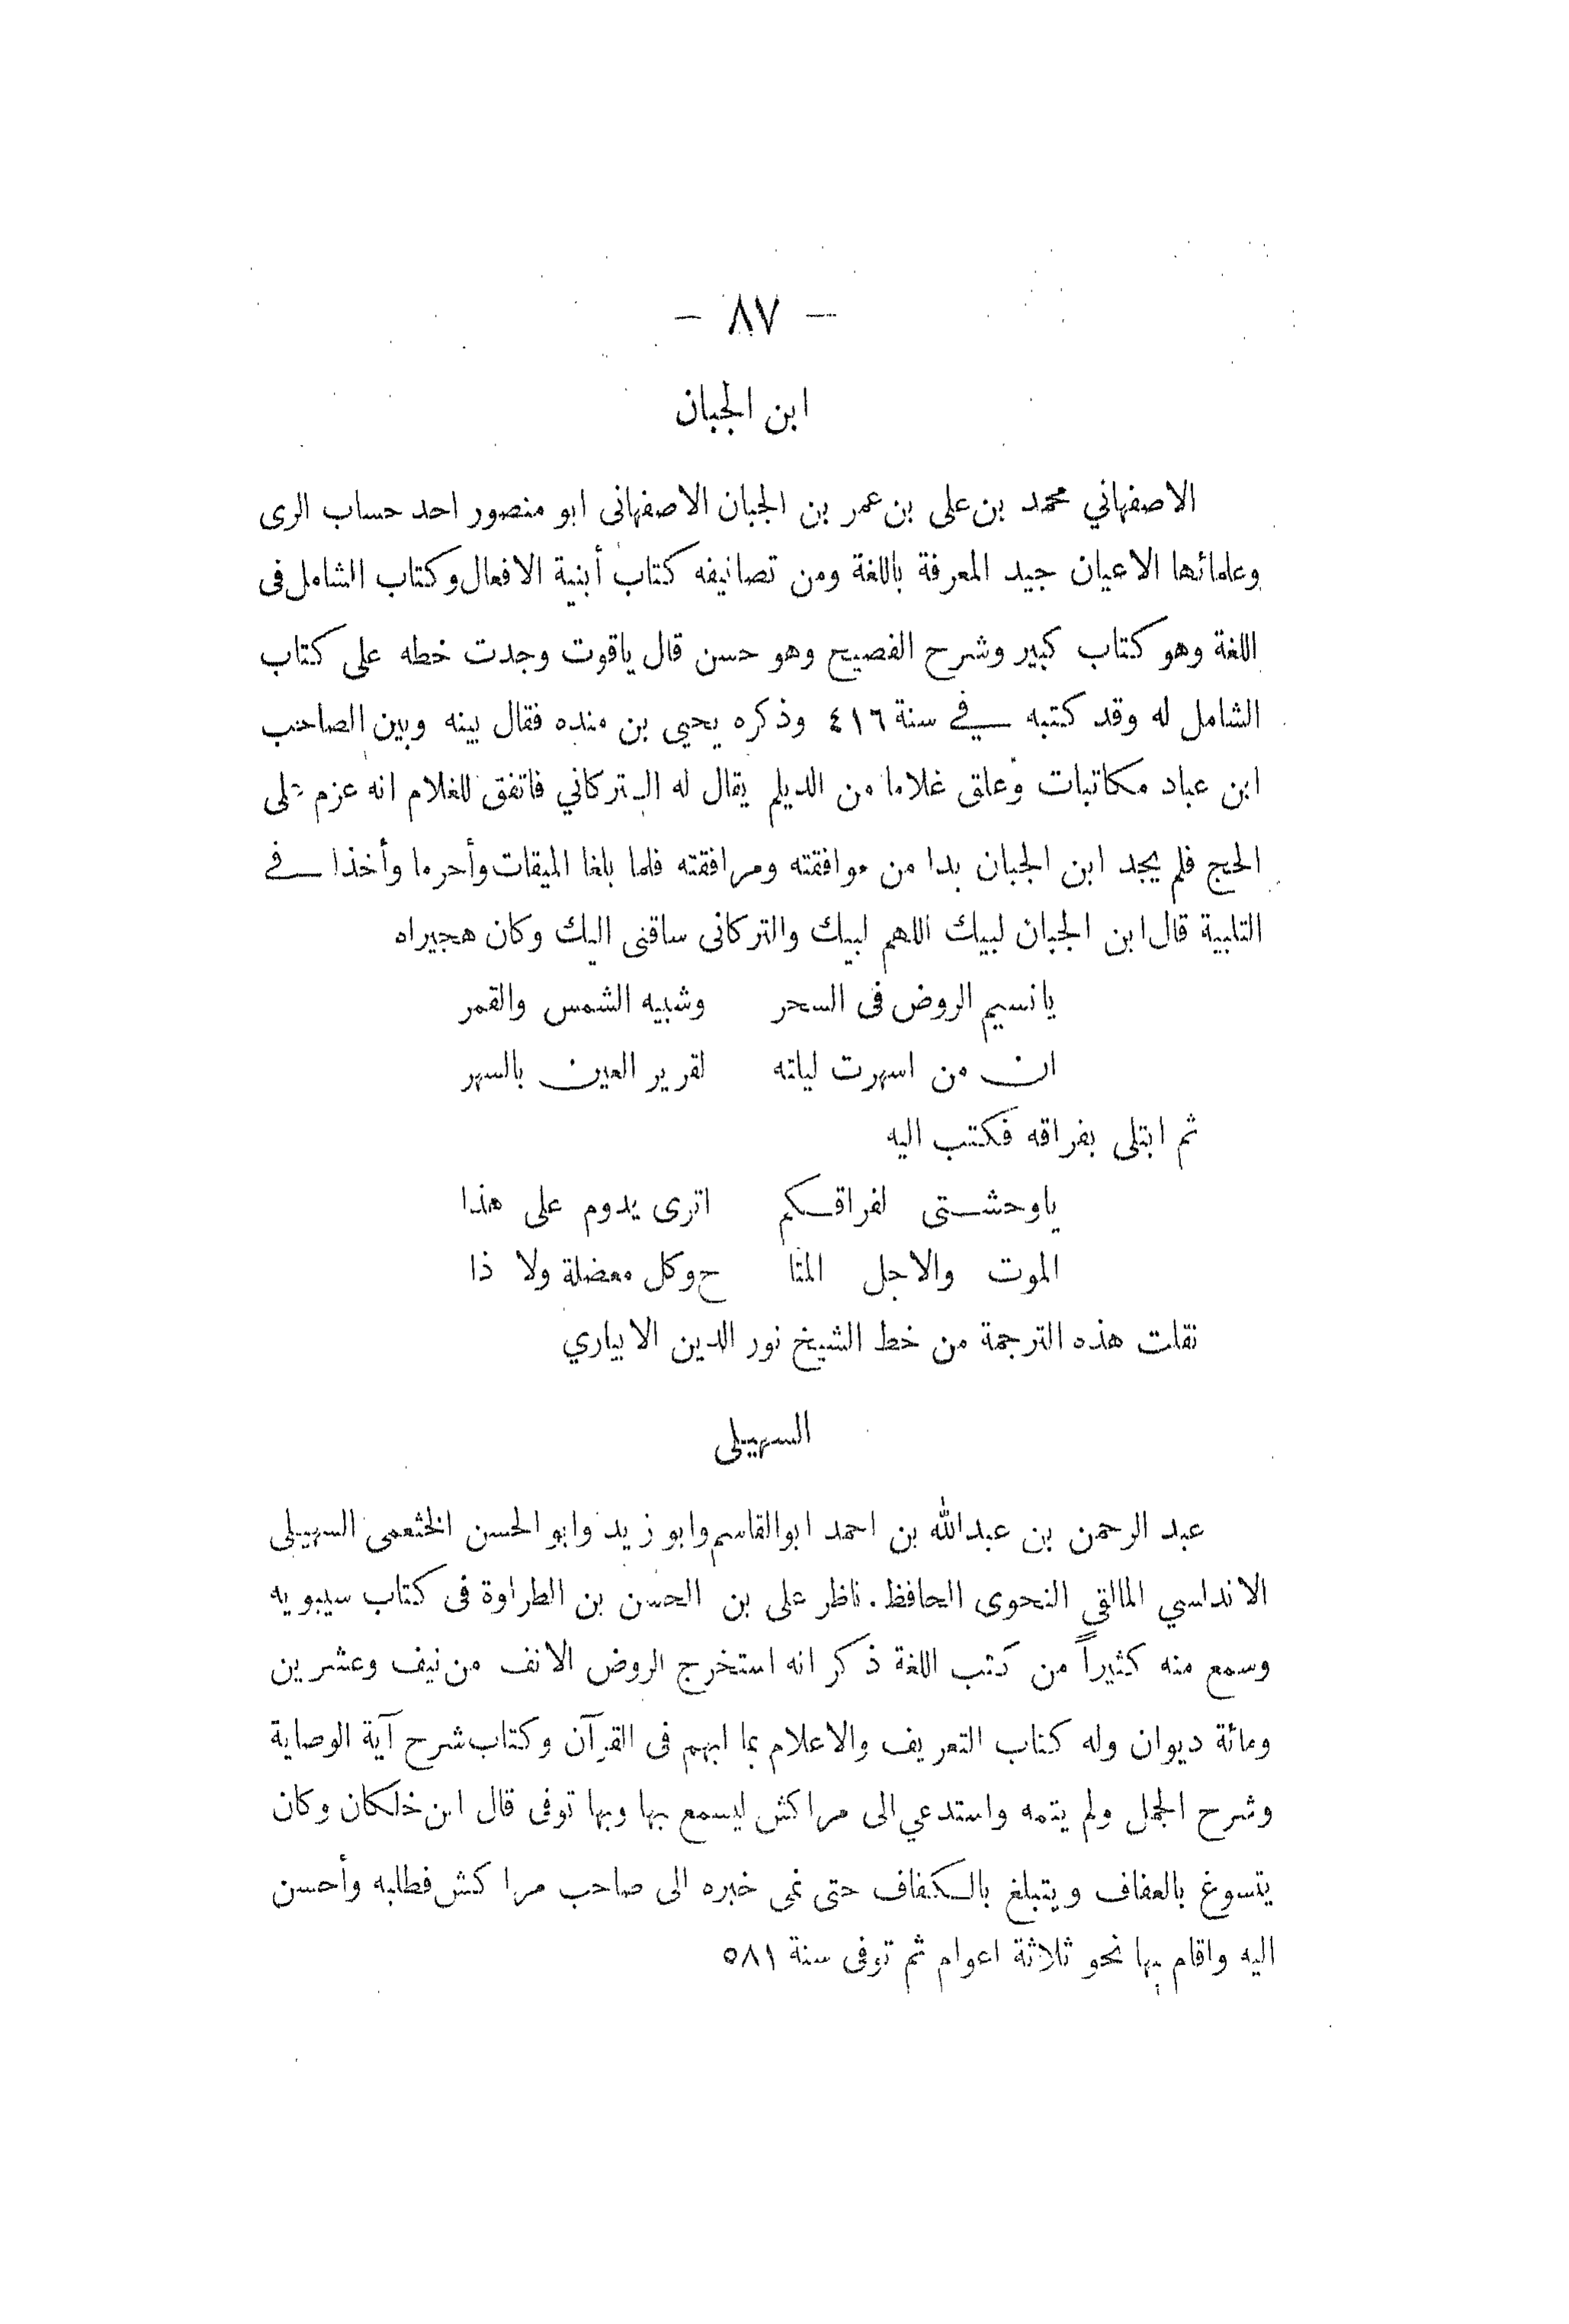 — ٨٧ —
ابن الجبان
الاصفهاني محمد بن على بن عمر بن الجبان الاصفهانى ابو منصور احد حساب الرى
وعلمائها الاعيان جيد المعرفة باللغة ومن تصانيفه كتاب أبنية الافعال وكتاب الشامل فى
اللغة وهو كتاب كبير وشرح الفصيح وهو حسن قال ياقوت وجدت خطه على كتاب
الشامل له وقد كتبه في سنة ٤١٦ وذكره يحيى بن منده فقال بينه وبين الصاحب
ابن عباد مكاتبات وعلق غلاما من الديلم يقال له التركاني فاتفق للغلام انه عزم على
الحج فلم يجد ابن الجبان بدا من موافقته ومرافقته فلما بلغا الميقات وأحرما وأخذا في
التلبية قال ابن الجبان لبيك اللهم لبيك والتركانى ساقنى اليك وكان هجيراه
يا نسيم الروض فى السحر وشبيه الشمس والقمر
ان من اسهرت ليلته لقرير العين بالسهر
ثم ابتلى بفراقه فكتب اليه
ياوحشتى لفراقكم اترى يدوم على هذا
الموت والاجل المتا ح وكل معضلة ولا ذا
نقلت هذه الترجمة من خط الشيخ نور الدين الابياري
السهيلى
عبد الرحمن بن عبدالله بن احمد ابوالقاسم وابو زيد وابو الحسن الخثعمى السهيلى
الاندلسي المالقي النحوى الحافظ. ناظر على بن الحسن بن الطراوة فى كتاب سيبويه
وسمع منه كثيراً من كتب اللغة ذكر انه استخرج الروض الانف من نيف وعشرين
ومائة ديوان وله كتاب التعريف والاعلام بما ابهم فى القرآن وكتاب شرح آية الوصاية
وشرح الجمل ولم يتمه واستدعي الى مراكش ليسمع بها وبها توفى قال ابن خلكان وكان
يتسوغ بالعفاف ويتبلغ بالكفاف حتى نمى خبره الى صاحب مراكش فطلبه وأحسن
اليه واقام بها نحو ثلاثة اعوام ثم توفى سنة ٥٨١